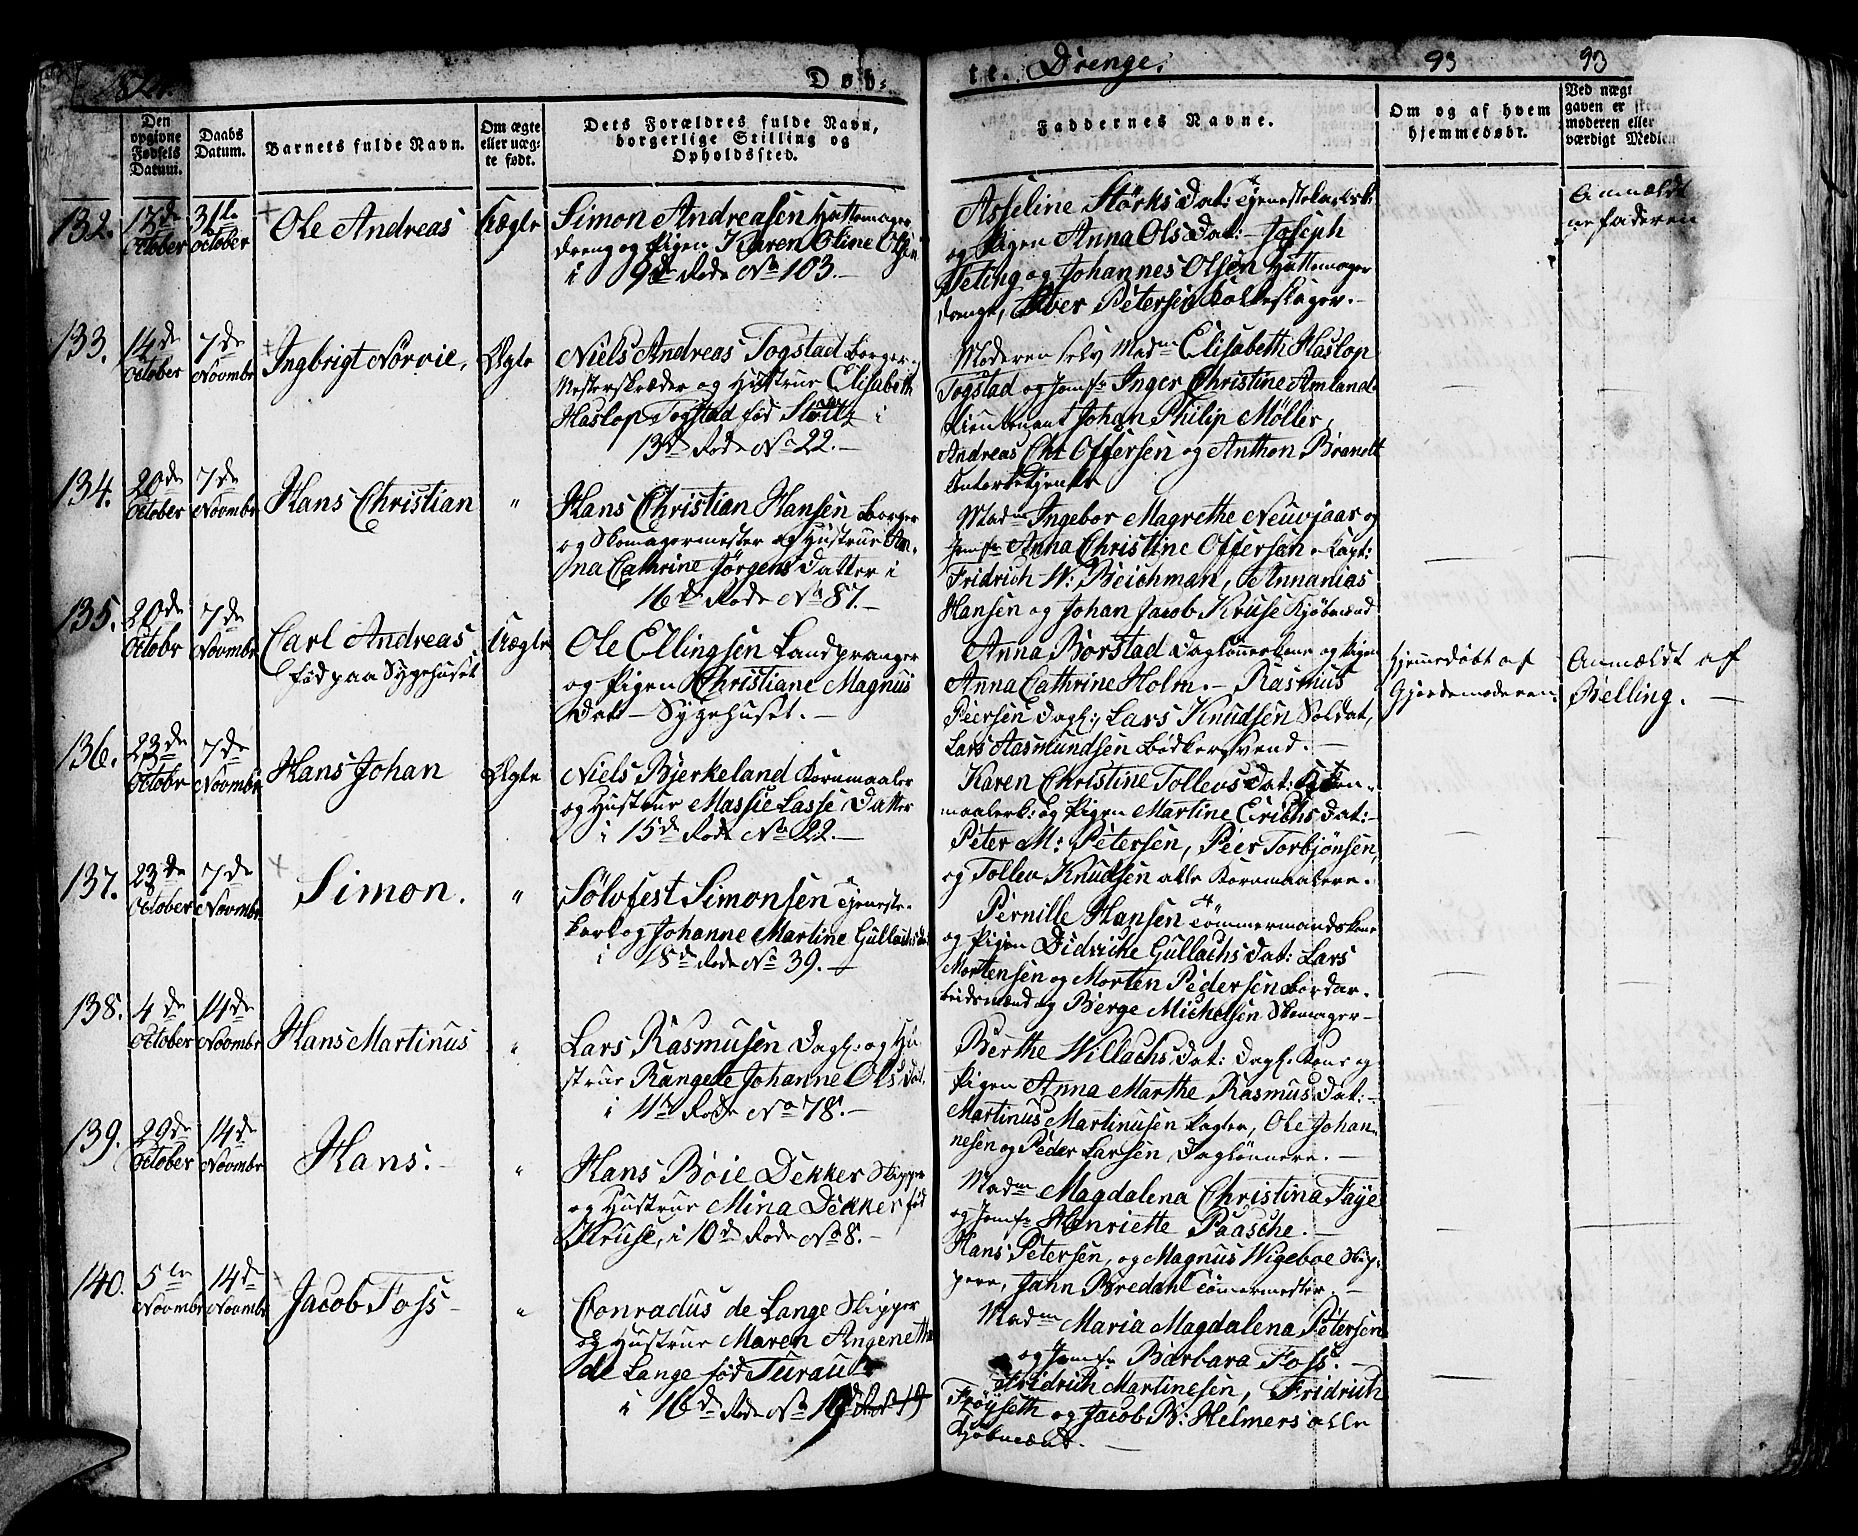 182
Døb-
te. Drenge.
93
93
Den opgivne Fødsels Datum.
Daabs Datum.
Barnets fulde Navn.
Om ægte eller uæg- te født.
Dets Forældres fulde Navn, borgerlige Stilling og Opholdssted.
Faddernes Navne.
Om og af hvem hjemmedøbt.
Ved
gaven er
moderen eller
værdigt
132.
October
31te October
Ole Andreas
Uægte
Simon Andreasen Hattemager
dreng og Pigen Karen Oline
i 9de Rode No 103.-
Asseline Størksdat:
og Pigen Anna Olsdat:- Joseph
Teting og Johannes Olsen Hattemager
drenge, Iver Petersen
Anmældt
133.
14de October
7de Novmbr
Ingbrigt Norvie,
Ægte
Niels Andreas Togstad Borger
Mesterskræder og Hustrue Elisabeth
Haslop Togstad fød i
13de Rode No 22.-
Moderen selv Madme Elisabeth Haslop
Togstad og Jomfr Inger Christine Amland
Lieutenant Johan Philip Møller,
Andreas Chr Offersen og Anthon Brandt
134.
20de October
7de Novmbr
Hans Christian
"
Hans Christian Hansen Borger
og Skomagermester og Hustrue An-
na Cathrine Jørgens Datter i
16de Rode No 87.-
Madme Ingebor Magrethe Neuvjaar og
Jomfr Anna Christine Offersen - Capt:
Fridrich W: Beichman, Annanias
Hansen og Johan Jacob Kruse Kjøbmænd
135.
20de Octobr
7de Novmbr
Carl Andreas
fød paa Sygehuset
Uægte
Ole Ellingsen Landpranger
og Pigen Christiane Magnus
Datt - Sygehuset.-
Anna Borstad Daglønnerkone og Pigen
Anna Cathrine Holm.- Rasmus
Peersen Dagl:, Lars Knudsen Soldat,
Lars Aasmundsen Bødkersvend.-
Hjemmedøbt af
Gjordemoderen.
Anmældt af
Belling. -
136.
23de Octobr
7de Novmbr
Hans Johan
Ægte
Niels Bjerkeland Kornmaaler
og Hustrue Massie Lasse Datter
i 15de Rode No 22.-
Karen Christine Tollevsdat:
maalerk: og Pigen Martine Erichsdat:-
Peter M: Petersen, Peer Torbjønsen,
og Tollev Knudsen alle Kornmaalere.
137.
23de October
7de Novmbr
Simon.
"
Sølvfest Simonsen Tjeneste-
karl og Johanne Martine Gullachsdat
i 18de Rode No 39.-
Pernille Hansen Tømmermandskone
og Pigen Didricke Gullachsdat: Lars
Mortensen og Morten Pedersen Bordar-
beidsmænd og Berge Michelsen Skomager-
138.
4de October
14de Novmbr
Hans Martinus
"
Lars Rasmusen Dagl: og Hu-
strue Rangele Johanne Olsdat.
i 4de Rode No 78.-
Berthe Willachsdat: Dagl. Kone og
Pigen Anna Marthe Rasmusdat:-
Martinus Martinusen Bagter, Ole Johan-
nesen og Peder Larsen Daglønnere.-
139.
29de October
14de Novmbr
Hans.-
"
Hans Böie Dekker Skipper
og Hustrue Mina Dekker fød
Kruse, i 10de Rode No 8.-
Madme Magdalena Christina Faÿe
og Jomfr Henriette Paasche.-
Hans Petersen, og Magnus Wigeboe Skip-
pere, Jahn Bredahl Tømermester.-
140.
5te Novmbr
14de Novmbr
Jacob Foss-
"
Conradus de Lange Skipper
og Hustrue Maren Angenetha
de Lange fød Turau
i 16de Rode No 19
Madme Maria Magdalena Petersen
og Jomfr Barbara Foss.-
Fridrich Martinesen, Fridrich
Frøÿseth og Jacob W: Helmers alle
Kjøbmænd.-